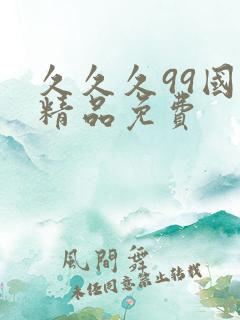 久久久99國
精品免費
風間舞
未经同意禁止转载